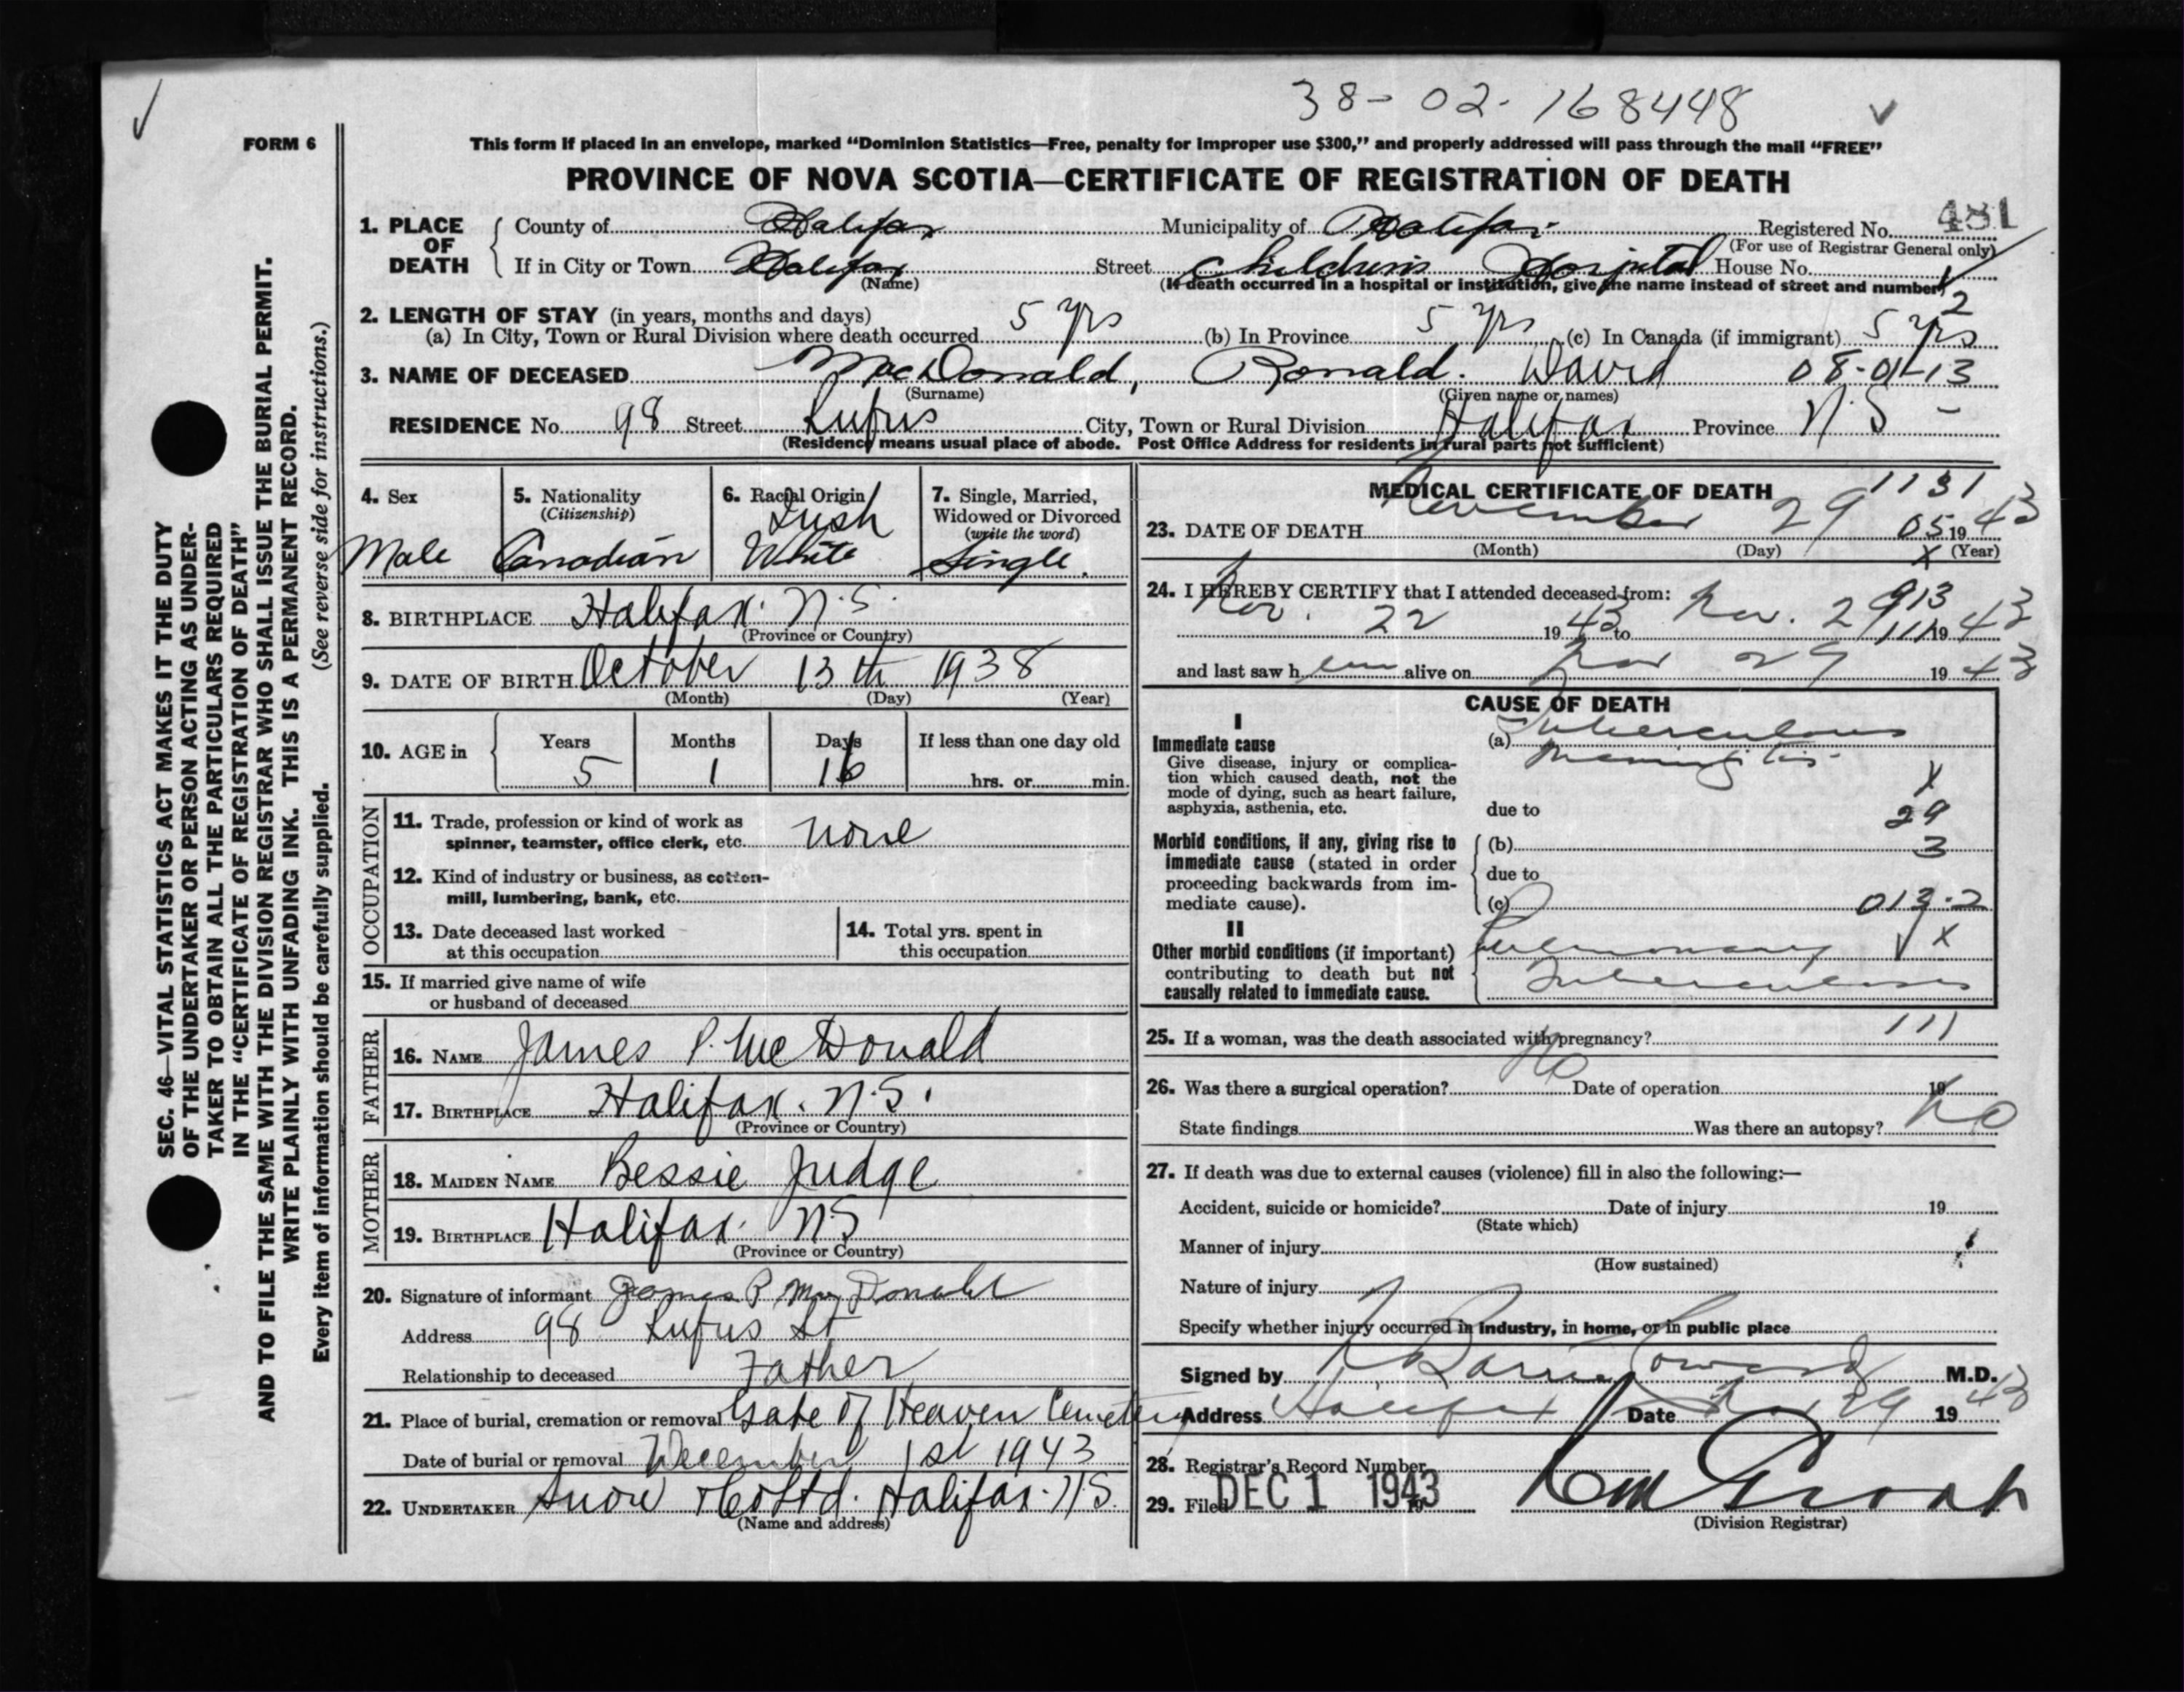 38-02-168448
FORM 6
This form if placed in an envelope, marked "Dominion Statistics—Free, penalty for improper use $300," and properly addressed will pass through the mail "FREE"
PROVINCE OF NOVA SCOTIA—CERTIFICATE OF REGISTRATION OF DEATH
1. PLACE OF DEATH
County of Halifax Municipality of Halifax Registered No. 481
(For use of Registrar General only)
If in City or Town Halifax Street Children's Hospital House No.
(Name) (If death occurred in a hospital or institution, give the name instead of street and number)
2
2. LENGTH OF STAY (in years, months and days)
(a) In City, Town or Rural Division where death occurred 5 yrs (b) In Province 5 yrs (c) In Canada (if immigrant) 5 yrs
3. NAME OF DECEASED MacDonald, Ronald. David 08-01-13
(Surname) (Given name or names)
RESIDENCE No. 98 Street Rufus City, Town or Rural Division Halifax Province N.S
(Residence means usual place of abode. Post Office Address for residents in rural parts not sufficient)
SEC. 46—VITAL STATISTICS ACT MAKES IT THE DUTY
OF THE UNDERTAKER OR PERSON ACTING AS UNDER-
TAKER TO OBTAIN ALL THE PARTICULARS REQUIRED
IN THE "CERTIFICATE OF REGISTRATION OF DEATH"
AND TO FILE THE SAME WITH THE DIVISION REGISTRAR WHO SHALL ISSUE THE BURIAL PERMIT.
WRITE PLAINLY WITH UNFADING INK. THIS IS A PERMANENT RECORD.
Every item of information should be carefully supplied. (See reverse side for instructions.)
4. Sex
Male
5. Nationality
(Citizenship)
Canadian
6. Racial Origin
Irish
White
7. Single, Married,
Widowed or Divorced
(write the word)
Single.
8. BIRTHPLACE Halifax. N.S.
(Province or Country)
9. DATE OF BIRTH October 13th 1938
(Month) (Day) (Year)
10. AGE in
Years Months Days If less than one day old
5 1 16 hrs. or min.
OCCUPATION
11. Trade, profession or kind of work as
spinner, teamster, office clerk, etc. none
12. Kind of industry or business, as cotton-
mill, lumbering, bank, etc.
13. Date deceased last worked
at this occupation
14. Total yrs. spent in
this occupation
15. If married give name of wife
or husband of deceased
FATHER
16. NAME James P. McDonald
17. BIRTHPLACE Halifax. N.S.
(Province or Country)
MOTHER
18. MAIDEN NAME Bessie Judge
19. BIRTHPLACE Halifax. N.S
(Province or Country)
20. Signature of informant James P MacDonald
Address 98 Rufus St
Relationship to deceased Father
21. Place of burial, cremation or removal Gate of Heaven Cemetery
Date of burial or removal December 1st 1943
22. UNDERTAKER Snow & Co Ltd. Halifax. N.S.
(Name and address)
MEDICAL CERTIFICATE OF DEATH
1131
23. DATE OF DEATH November 29 05 19 43
(Month) (Day) x (Year)
24. I HEREBY CERTIFY that I attended deceased from:
913
Nov. 22 19 43 to Nov. 29 111 19 43
and last saw h im alive on Nov 29 19 43
CAUSE OF DEATH
I
Immediate cause
Give disease, injury or complica-
tion which caused death, not the
mode of dying, such as heart failure,
asphyxia, asthenia, etc.
(a) Tuberculous
Meningitis
x
due to 29
Morbid conditions, if any, giving rise to
immediate cause (stated in order
proceeding backwards from im-
mediate cause).
(b) 3
due to
(c) 013.2
II
Other morbid conditions (if important)
contributing to death but not
causally related to immediate cause.
Pulmonary x
Tuberculosis
25. If a woman, was the death associated with pregnancy? 111
26. Was there a surgical operation? No Date of operation 19
State findings Was there an autopsy? No
27. If death was due to external causes (violence) fill in also the following:—
Accident, suicide or homicide? Date of injury 19
(State which)
Manner of injury
(How sustained)
Nature of injury
Specify whether injury occurred in industry, in home, or in public place
Signed by Coward M.D.
Address Halifax Date Nov 29 19 43
28. Registrar's Record Number
29. Filed DEC 1 1943 19
(Division Registrar)